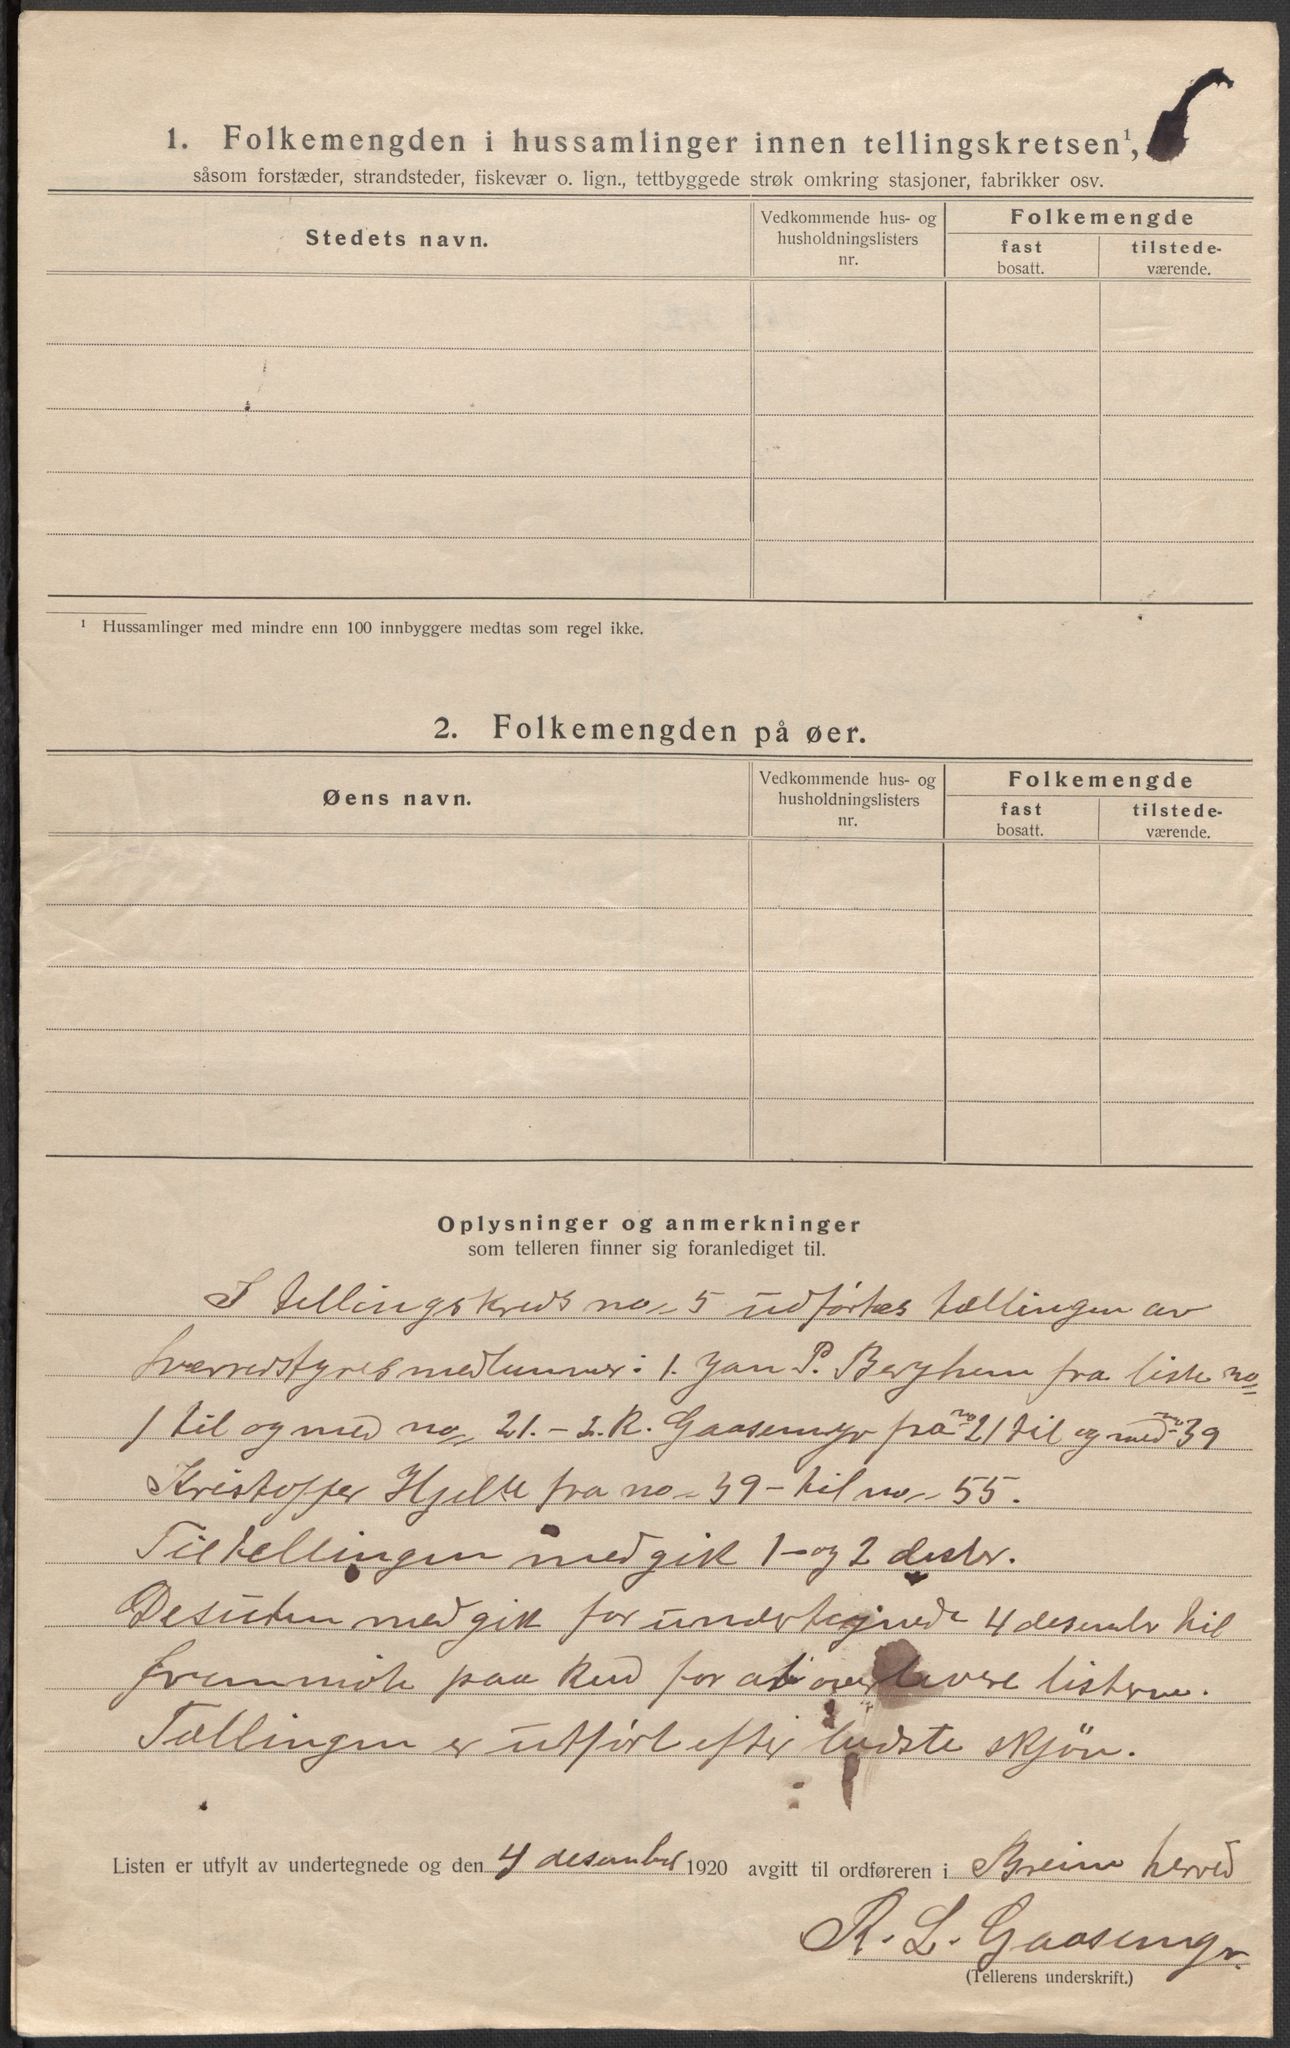 1. Folkemengden i hussamlinger innen tellingskretsen¹,
såsom forstæder, strandsteder, fiskevær o. lign., tettbyggede strøk omkring stasjoner, fabrikker osv.
Stedets navn.
Vedkommende hus- og
husholdningslisters
nr.
Folkemengde
fast
bosatt.
tilstede-
værende.
¹ Hussamlinger med mindre enn 100 innbyggere medtas som regel ikke.
2. Folkemengden på øer.
Øens navn.
Vedkommende hus- og
husholdningslisters
nr.
Folkemengde
fast
bosatt.
tilstede-
værende.
Oplysninger og anmerkninger
som telleren finner sig foranlediget til.
I tellingskreds no 5 udförtes tællingen av
1. Jan P. Berghem fra liste no
1 til og med no 21. - 2. R. Gaasemyr fra no 21 til og med no 39
Kristoffer Hjelle fra no 39 - til no 55.
Til tellingen medgik 1 og 2 desbr.
Desuten medgik for undertegnede 4 desember til
fremmöte paa Red for at overlevere listerne.
Tællingen er utfört efter bedste skjön.
Listen er utfylt av undertegnede og den 4 desember 1920 avgitt til ordføreren i Breim herred
R. L. Gaasemyr.
(Tellerens underskrift.)